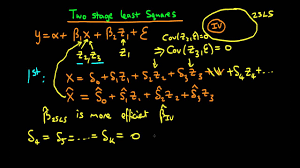 Two stage Least Squares
IV
2SLS
y = α + β₁x + β₂z₁ + ε
Cov(z₂,ε) = 0
⇒ Cov(z₃,ε) = 0
z₂, z₃
z₁
1st:
x = δ₀ + δ₁z₁ + δ₂z₂ + δ₃z₃ + δ₄z₄ + ...
x̂ = δ̂₀ + δ̂₁z₁ + δ̂₂z₂ + δ̂₃z₃
β̂2SLS is more efficient β̂IV
δ₄ = δ₅ = ... = δₖ = 0